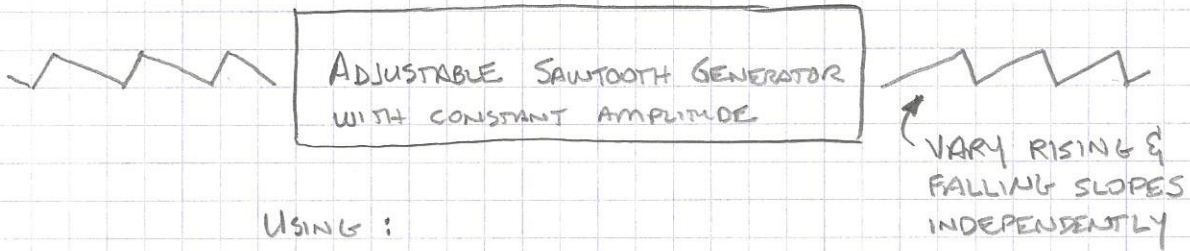 ADJUSTABLE SAWTOOTH GENERATOR
WITH CONSTANT AMPLITUDE
VARY RISING &
FALLING SLOPES
INDEPENDENTLY
USING: